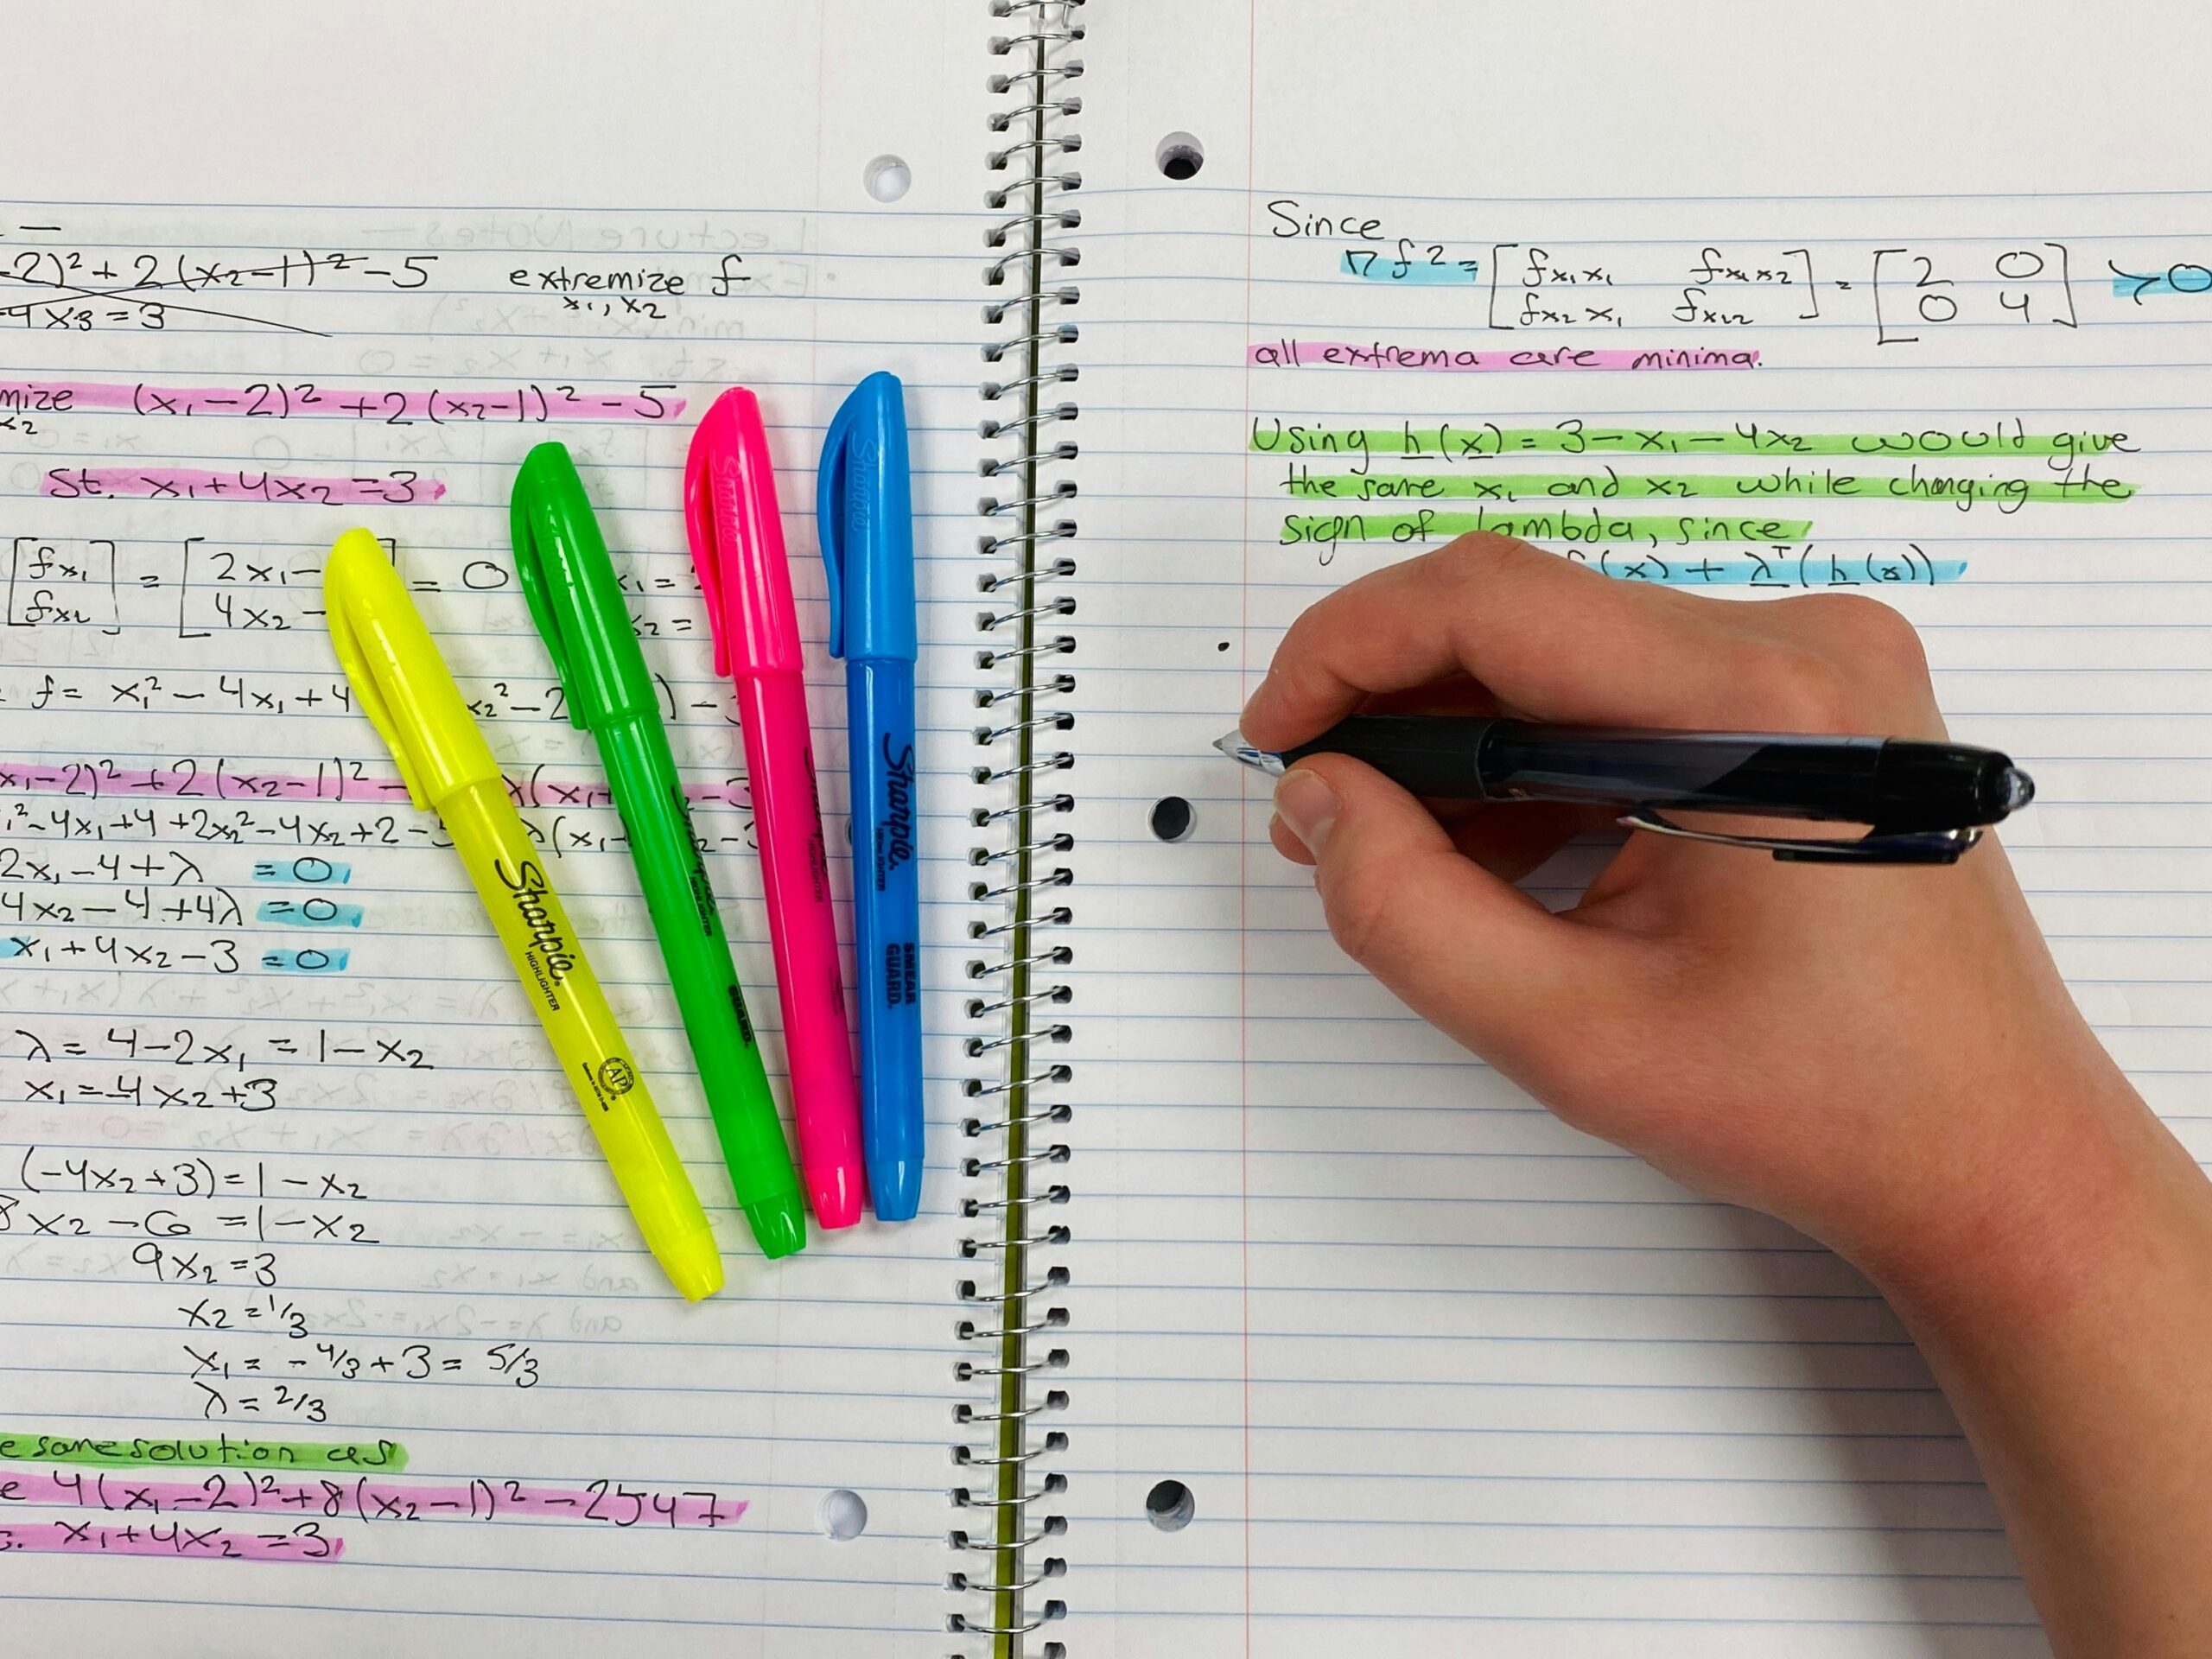 -2)² + 2(x₂-1)² - 5 extremize f
x₁, x₂
-4x₃ = 3
mize (x₁-2)² + 2(x₂-1)² - 5
x₂
st. x₁+4x₂ = 3
[fx₁] = [2x₁- ] = 0 x₁ =
[fx₂] [4x₂- ] x₂ =
f = x₁² - 4x₁ + 4 x₂² - 2 ) -
x₁-2)² + 2(x₂-1)² - λ(x₁+ -3
₁² - 4x₁ + 4 + 2x₂² - 4x₂ + 2 - 5 λ(x₁+ x₂ - 3
2x₁ - 4 + λ = 0
4x₂ - 4 + 4λ = 0
x₁ + 4x₂ - 3 = 0
λ = 4 - 2x₁ = 1 - x₂
x₁ = -4x₂ + 3
(-4x₂+3) = 1 - x₂
8x₂ - 6 = 1 - x₂
9x₂ = 3
x₂ = 1/3
x₁ = -4/3 + 3 = 5/3
λ = 2/3
e same solution as
e 4(x₁-2)² + 8(x₂-1)² - 2547
x₁+4x₂ = 3
Sharpie.
HIGHLIGHTER
AP
Sharpie
HIGHLIGHTER
GUARD.
Sharpie
HIGHLIGHTER
Sharpie
Sharpie.
HIGHLIGHTER
SMEAR
GUARD.
Since
∇f² = [fx₁x₁ fx₁x₂] = [2 0] ≻0
[fx₂x₁ fx₂₂] [0 4]
all extrema are minima.
Using h(x) = 3 - x₁ - 4x₂ would give
the same x₁ and x₂ while changing the
sign of lambda, since
f(x) + λᵀ(h(x))